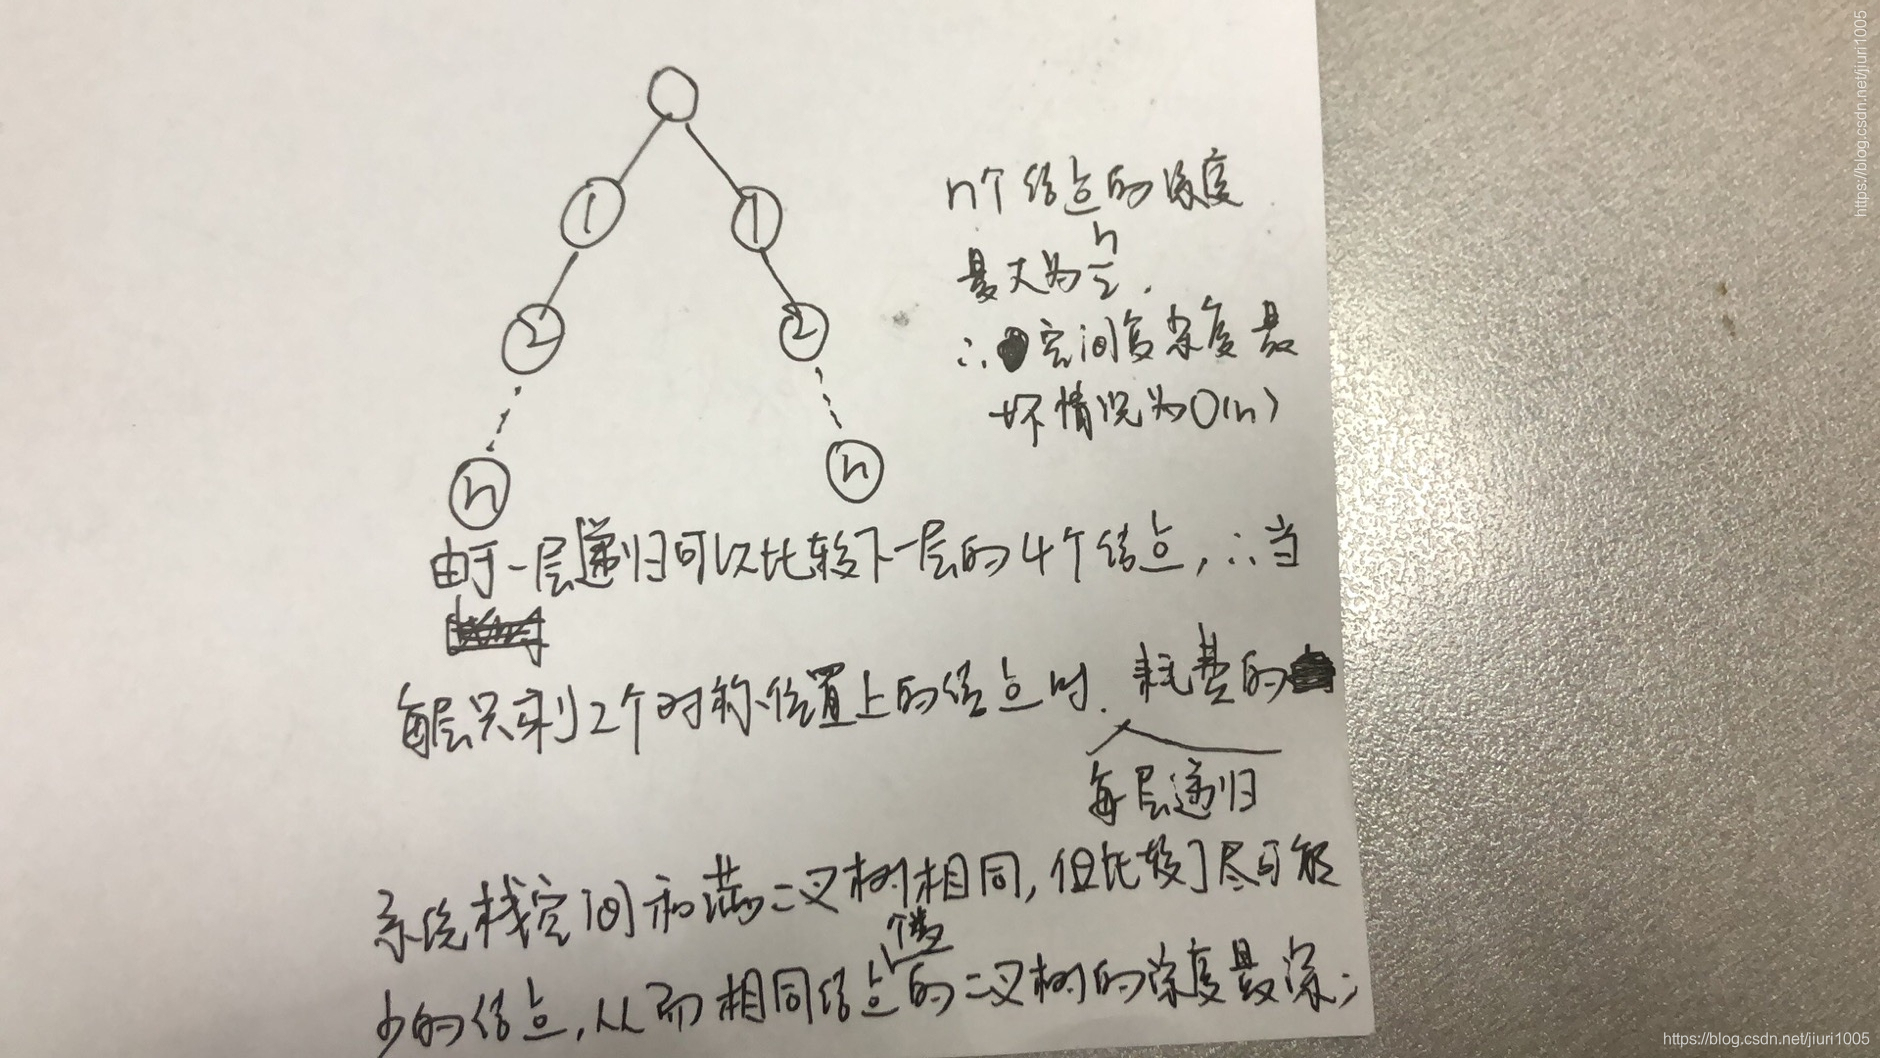 1
1
2
2
n
n
n个结点的深度
最大为n/2.
∴空间复杂度最
坏情况为O(n)
由于一层递归可以比较下一层的4个结点,∴当
每层只剩2个对称位置上的结点时.耗费的
每层递归
系统栈空间和满二叉树相同,但比较了尽可能
个数
少的结点,从而相同结点的二叉树的深度最深;
https://blog.csdn.net/jiuri1005
https://blog.csdn.net/jiuri1005